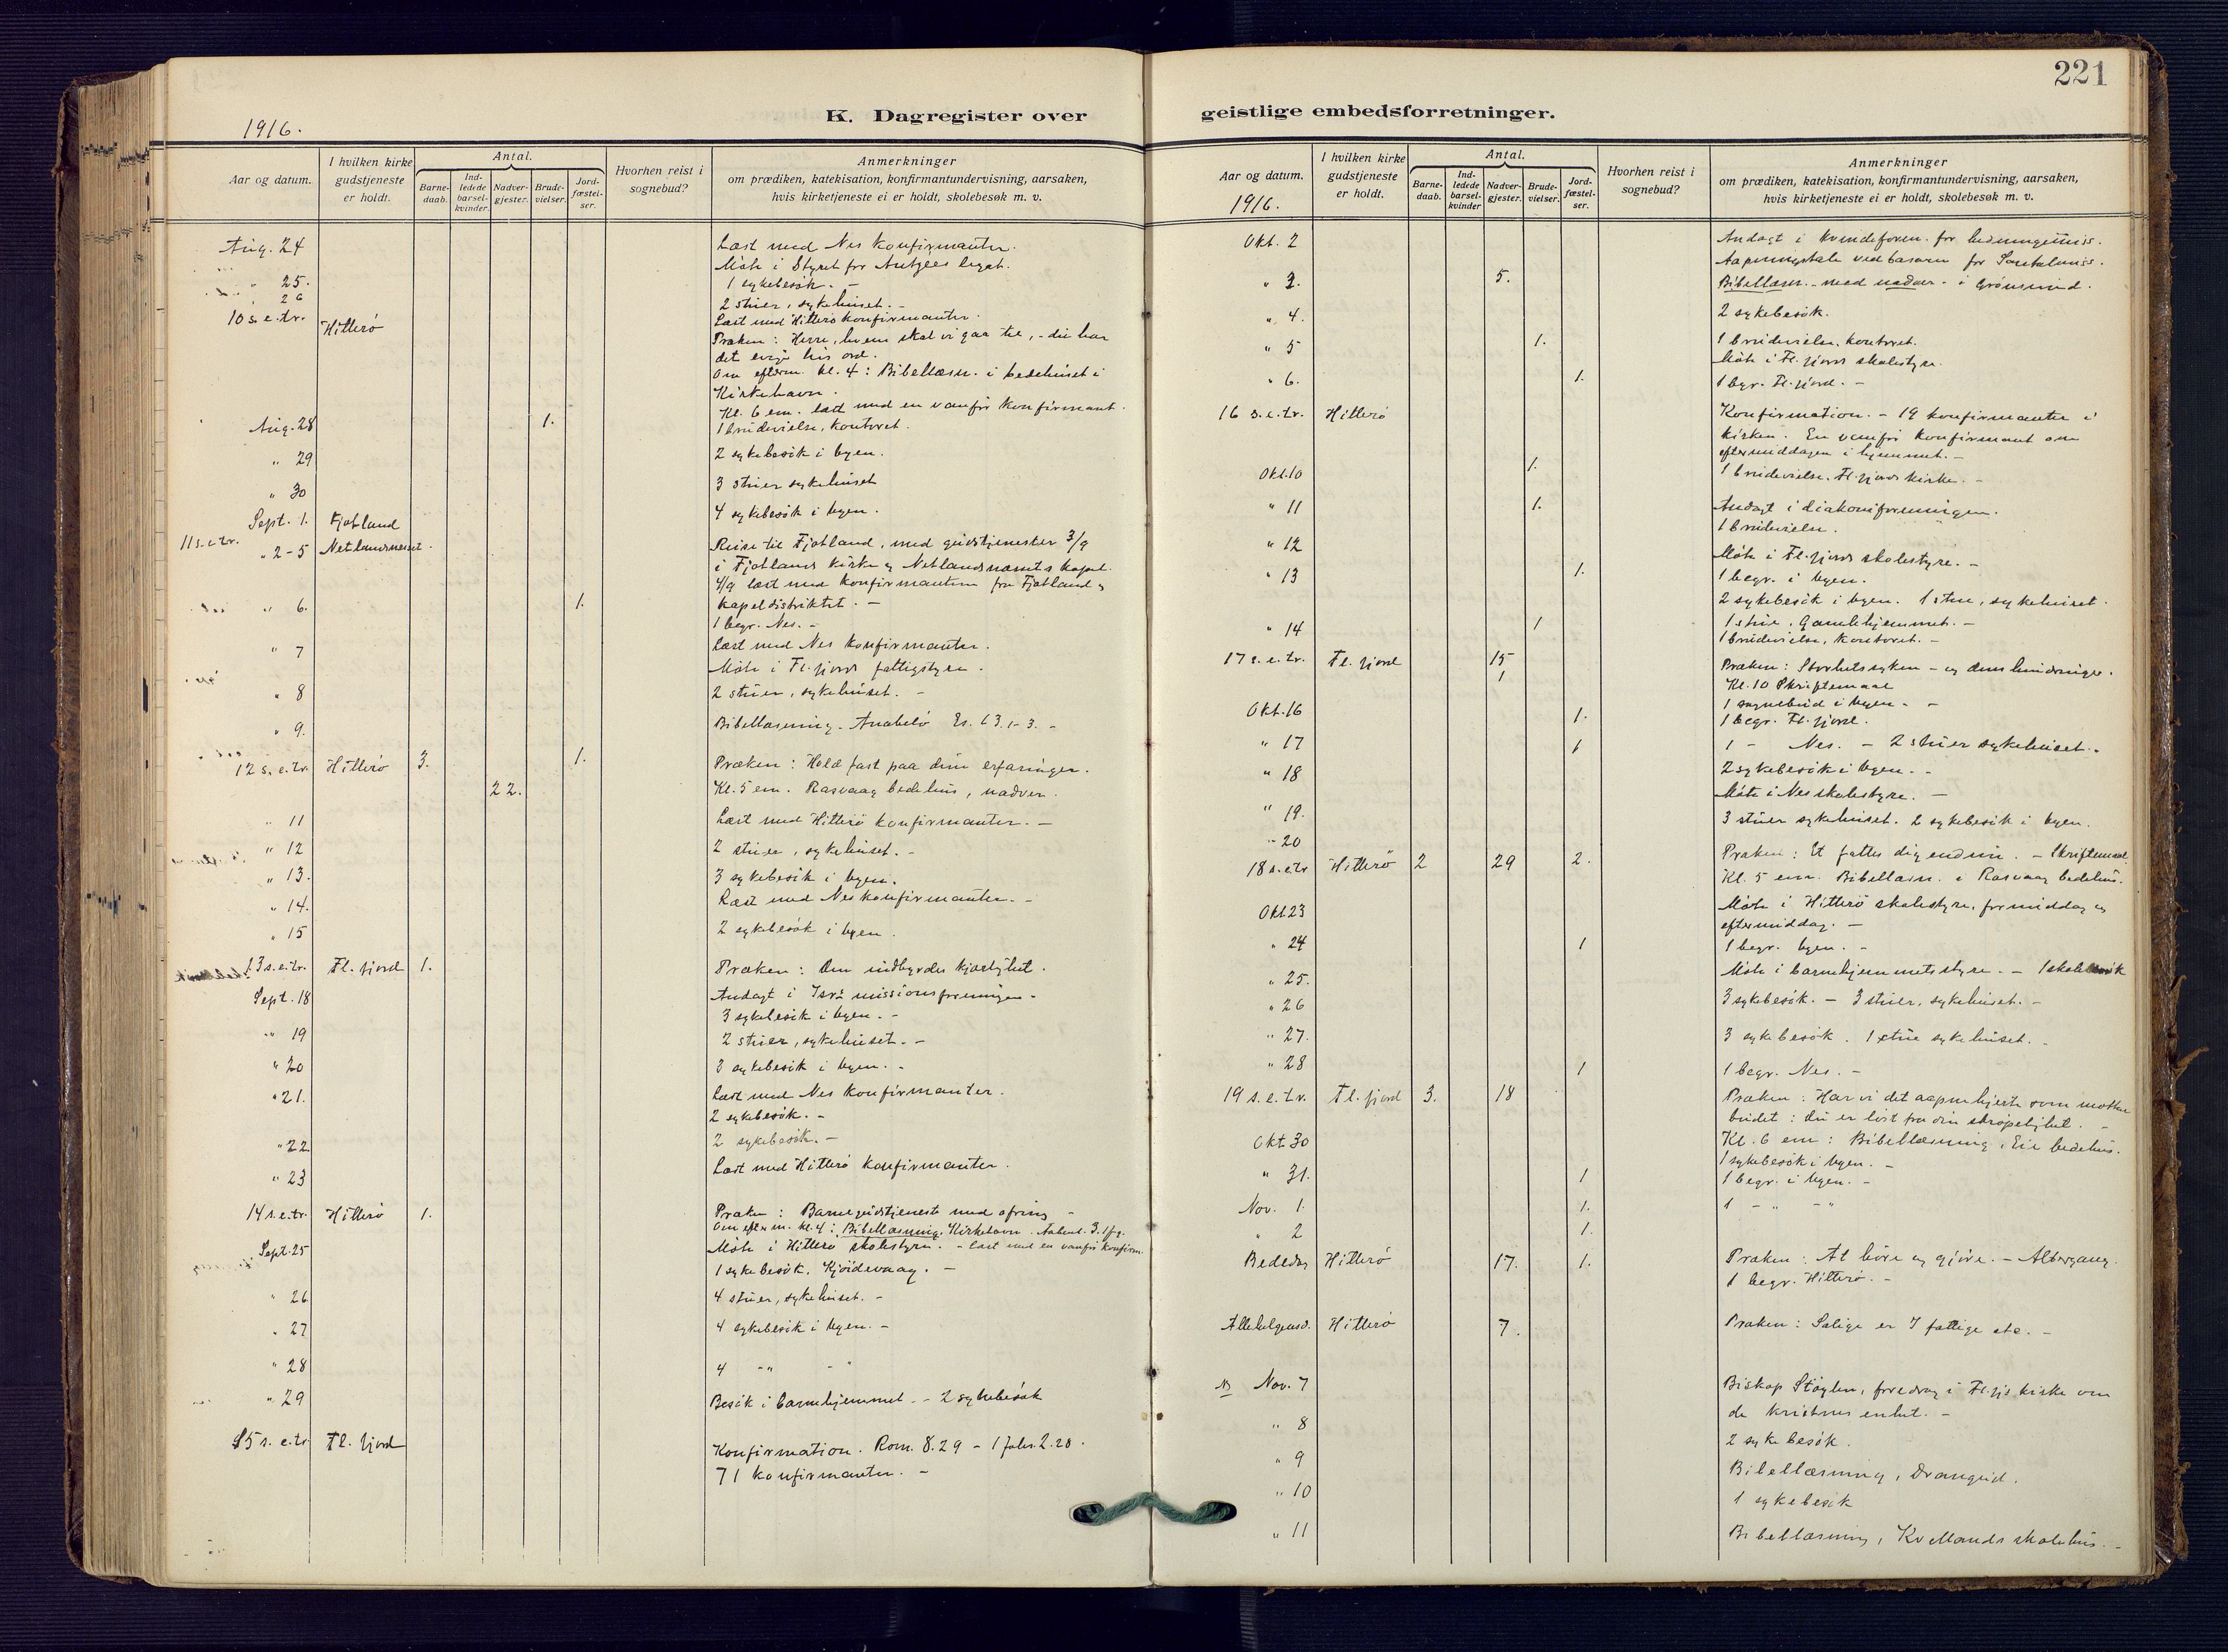 221
K. Dagregister over
geistlige embedsforretninger.
1916.
Aar og datum.
I hvilken kirke gudstjeneste er holdt.
Antal.
Barne-daab.
Ind-ledede barsel-kvinder.
Nadver-gjester.
Brude-vielser.
Jord-fæstel-ser.
Hvorhen reist i sognebud?
Anmerkninger
om prædiken, katekisation, konfirmantundervisning, aarsaken,
hvis kirketjeneste ei er holdt, skolebesøk m. v.
Aug. 24 Læst med Nes konfirmanter.
Møte i Styret for legat.
" 25. 1 sykebesøk. -
" 26 2 stuer, sykehuset. -
Læst med Hitterø konfirmanter.
10 s. e. tr. Hitterø Præken: Herre, hvem skal vi gaa til, - du har
det evige livs ord.
Om efterm. kl. 4: Bibellæsn. i bedehuset i
Kirkehavn.
Kl. 6 em. læst med en vanfør konfirmant.
Aug. 28 1. 1 brudevielse, kontoret.
" 29 2 sykebesøk i byen.
" 30 3 stuer sykehuset
Sept. 1. Fjotland 4 sykebesøk i byen.
11 s. e. tr. " 2-5 Netlandsneset. Reise til Fjotland, med gudstjenester 3/9
i Fjotlands kirke og Netlandsnesets kapel.
4/9 læst med konfirmanterne fra Fjotland og
kapeldistriktet. -
" 6. 1. 1 begr. Nes. -
" 7 Læst med Nes konfirmanter.
Møte i Fl.fjords fattigstyre.
" 8 2 stuer, sykehuset. -
" 9. Bibellæsning. Anabelø Es. 63. 1-3. -
12 s. e. tr. Hitterø 3. 1. Præken: Hold fast paa dine erfaringer.
22. Kl. 5 em. Rasvaag bedehus, nadver.
" 11 Læst med Hitterø konfirmanter. -
" 12 2 stuer, sykehuset. -
" 13. 3 sykebesøk i byen.
" 14. Læst med Nes konfirmanter. -
" 15 2 sykebesøk i byen.
13 s. e. tr. Fl.fjord 1. Præken: Om indbyrdes kjærlighet.
Sept. 18 Andagt i Isr. missionsforeningen -
3 sykebesøk i byen. -
" 19 2 stuer, sykehuset. -
" 20 3 sykebesøk i byen. -
" 21. Læst med Nes konfirmanter.
2 sykebesøk. -
" 22 2 sykebesøk. -
" 23 Læst med Hitterø konfirmanter.
14 s. e. tr. Hitterø 1. Præken: Barnegudstjeneste med ofring -
Om efterm. kl. 4: Bibellæsning. Kirkehavn. Aabenb. 3. 1 fg.
Sept. 25 Møte i Hitterø skolestyre. - læst med en vanfør konfirm.
1 sykebesøk. Kjørdevaag. -
" 26 4 stuer, sykehuset. -
" 27 4 sykebesøk i byen. -
" 28 4 -"- -"
" 29 Besøk i barnehjemmet. - 2 sykebesøk
15 s. e. tr. Fl.fjord Konfirmation. Rom. 8.29 - 1 Johs. 2.28.
71 konfirmanter. -
Aar og datum.
1916.
I hvilken kirke gudstjeneste er holdt.
Antal.
Barne-daab.
Ind-ledede barsel-kvinder
Nadver-gjester.
Brude-vielser.
Jord-fæstel-ser.
Hvorhen reist i sognebud?
Anmerkninger
om prædiken, katekisation, konfirmantundervisning, aarsaken,
hvis kirketjeneste ei er holdt, skolebesøk m. v.
Okt. 2 Andagt i Kvindeforen. for hedningemiss.
Aapningstale ved basaren for Santalmiss.
" 3. 5. Bibellæsn. - med nadver - i Grønsund.
" 4. 2 sykebesøk.
" 5 1. 1 brudevielse, kontoret.
Møte i Fl.fjords skolestyre.
" 6. 1. 1 begr. Fl.fjord. -
16 s. e. tr. Hitterø Konfirmation. - 19 konfirmanter i
kirken. En vanfør konfirmant om
eftermiddagen i hjemmet. -
Okt. 10 1. 1 brudevielse. Fl.fjords kirke. -
" 11 1. Andagt i diakoniforeningen.
1 brudevielse.
" 12 Møte i Fl.fjords skolestyre. -
" 13 1. 1 begr. i byen.
2 sykebesøk i byen. 1 stue, sykehuset.
" 14 1 1 stue, Gamlehjemmet. -
1 brudevielse, kontoret. -
17 s. e. tr. Fl.fjord 15 Præken: Storhetssyken - og dens lindringer.
1 Kl. 10 Skriftemaal
1 sognebud i byen. -
Okt. 16 1. 1 begr. Fl.fjord.
" 17 1 1 - Nes. - 2 stuer sykehuset. -
" 18 2 sykebesøk i byen. -
Møte i Nes skolestyre. -
" 19. 3 stuer sykehuset. 2 sykebesøk i byen.
" 20
18 s. e. tr Hitterø 2 29 2. Præken: Et fattes dig endnu. - Skriftemaal.
Kl. 5 em. Bibellæsn. i Rasvaag bedehus.
Okt 23 Møte i Hitterø skolestyre, formiddag og
eftermiddag. -
" 24 1 1 begr. byen. -
" 25. Møte i barnehjemmets styre. - 1 skolebesøk
" 26 3 sykebesøk. - 3 stuer, sykehuset. -
" 27. 3 sykebesøk. 1 stue sykehuset. -
" 28 1 1 begr. Nes. -
19 s. e. tr. Fl.fjord 3. 18 Præken: Har vi det aapne hjerte som mottar
budet: du er løst fra din skrøpelighet. -
Kl. 6 em: Bibellæsning, Eie bedehus.
Okt 30 1 sykebesøk i byen. -
" 31. 1 1 begr. i byen. -
Nov. 1. 1. 1 - " - "
" 2 1.
Bededag Hitterø 17. 1. Præken: At høre og gjøre. - Altergang.
1 begr. Hitterø. -
Allehelgensd. Hitterø 7. Præken: Salige er I fattige etc. -
Nov. 7 Biskop Støylen, foredrag i Fl.fjs kirke om
de kristnes enhet. -
" 8 2 sykebesøk.
" 9 Bibellæsning, Drangeid.
" 10 1 sykebesøk
" 11 Bibellæsning, Kvellands skolehus. -